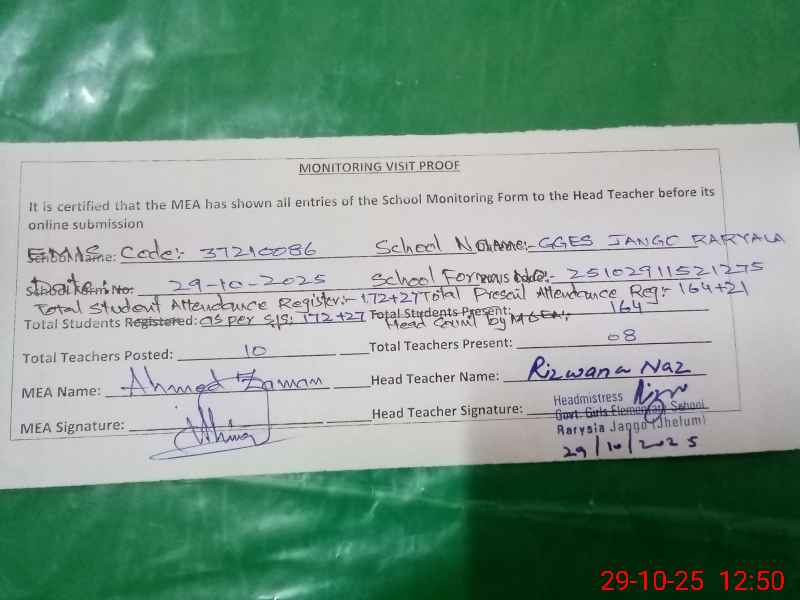 MONITORING VISIT PROOF
It is certified that the MEA has shown all entries of the School Monitoring Form to the Head Teacher before its
online submission
EMIS Code:- 37210086 School Name:- GGES JANGO RARYALA
Date:- 29-10-2025 School Form No:- 25102911521275
Total Student Attendance Register:- 172+27 Total Present Attendance Reg:- 164+21
Total Students Registered: as per SIS: 172+27 Total Students Present: 164
Head Count by MEA:-
Total Teachers Posted: 10 Total Teachers Present: 08
MEA Name: Ahmed Zaman Head Teacher Name: Rizwana Naz
MEA Signature: Head Teacher Signature:
Headmistress
Govt. Girls Elementary School
Raryala Jango (Jhelum)
29/10/2025
29-10-25 12:50